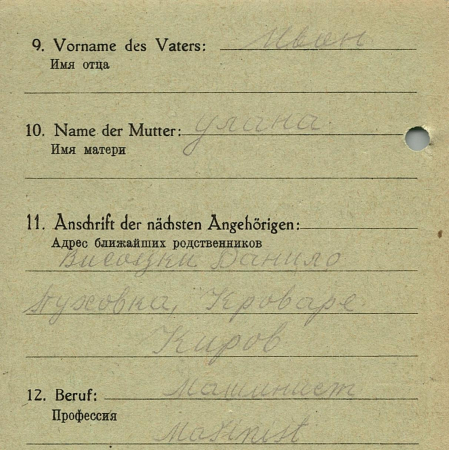 9. Vorname des Vaters: Иван
Имя отца
10. Name der Mutter: улана
Имя матери
11. Anschrift der nächsten Angehörigen:
Адрес ближайших родственников
Висоцки Данило
Пуховка, Кроваре
Киров
12. Beruf: Машинист
Профессия
Maschinist